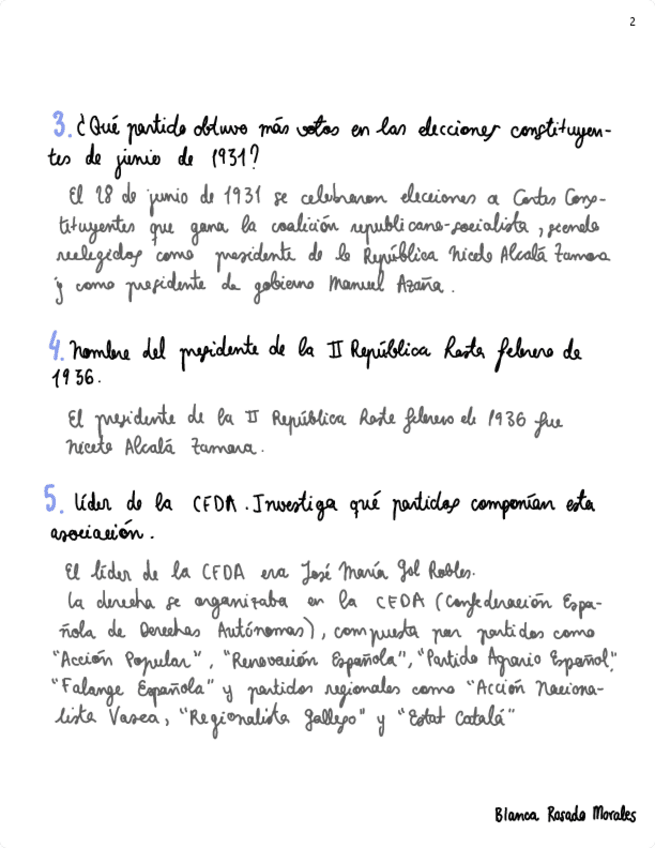 2
3. ¿Qué partido obtuvo más votos en las elecciones constituyen-
tes de junio de 1931?
El 28 de junio de 1931 se celebraron elecciones a Cortes Cons-
tituyentes que gana la coalición republicano-socialista, siendo
reelegidos como presidente de la República Niceto Alcalá Zamora
y como presidente de gobierno Manuel Azaña.
4. Nombre del presidente de la II República hasta febrero de
1936.
El presidente de la II República hasta febrero de 1936 fue
Niceto Alcalá Zamora.
5. Líder de la CEDA. Investiga qué partidos componían esta
asociación.
El líder de la CEDA era José María Gil Robles.
La derecha se organizaba en la CEDA (Confederación Espa-
ñola de Derechas Autónomas), compuesta por partidos como
"Acción Popular", "Renovación Española", "Partido Agrario Español",
"Falange Española" y partidos regionales como "Acción Naciona-
lista Vasca, "Regionalista Gallego" y "Estat Catalá"
Blanca Rosado Morales